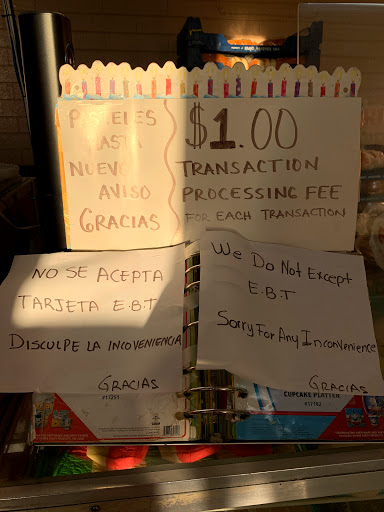 PASTELES
HASTA
NUEVO
AVISO
GRACIAS
$1.00
TRANSACTION
PROCESSING FEE
FOR EACH TRANSACTION
NO SE ACEPTA
TARJETA E.B.T
DISCULPE LA INCOVENIENCIA
GRACIAS
We Do Not Except
E.B.T
Sorry For Any Inconvenience
GRACIAS
CUPCAKE PLATTER